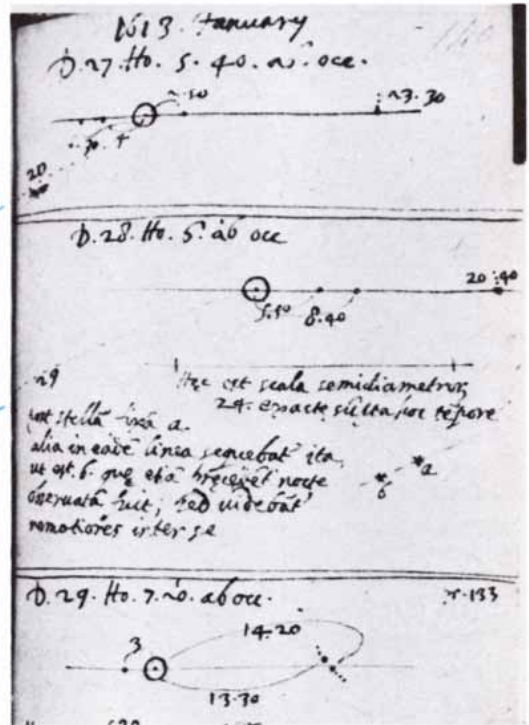 1613. January
D. 27. Ho. 5. 40. ab occ.
2.50 23.30
7. 4
20
D. 28. Ho. 5. ab occ
20.40
5.50 8.40
29
Hec est scala semidiametrorum
24. exacte sumpta hoc tempore
post stellā fixā a.
alia in eadē linea sequebat ita
ut est. b. que etiā nocte
observata fuit; sed videbat
remotiores inter se
a
b
D. 29. Ho. 7. 20. ab occ. r. 133
14.20
3
13.30